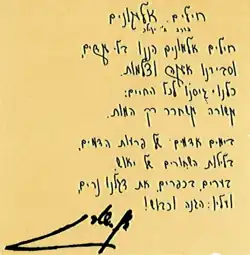 חילים אלמונים
חילים אלמונים הננו בלי מדים,
וסביבנו אימה וצלמות.
כלנו גיסנו לכל החיים:
משורה משחרר רק המות.
בימים אדמים של פרעות הדמים,
בלילות השחורים של יאוש,
בערים, בכפרים, את דגלנו נרים,
ועליו: הגנה וכבוש!